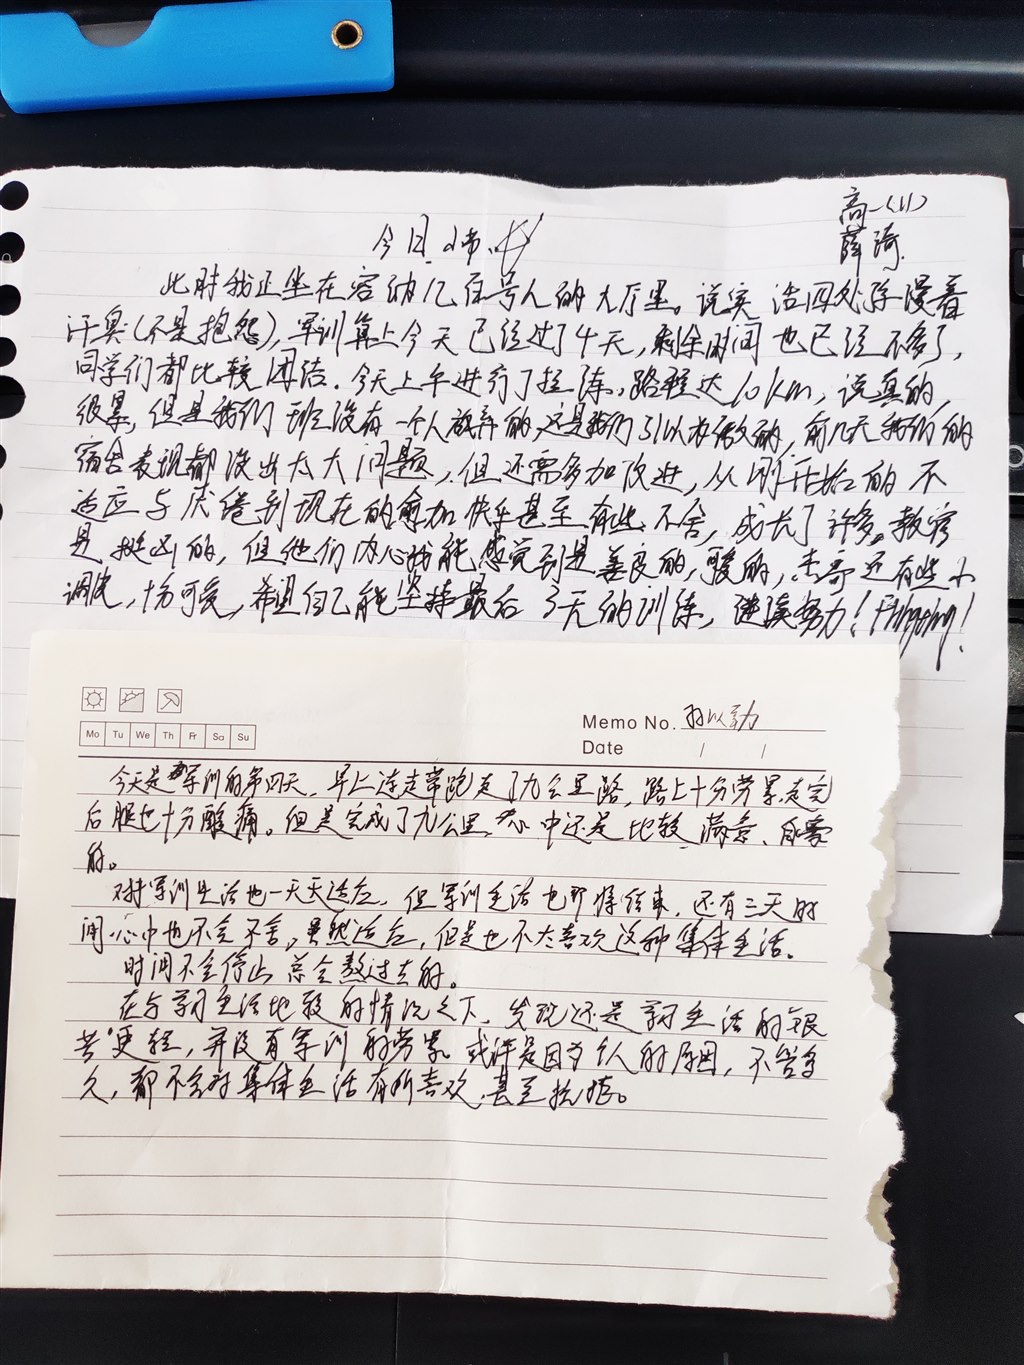 高一(11)
薛琦
今日小节
此时我正坐在容纳几百号人的大厅里。说实话四处弥漫着
汗臭(不是抱怨),军训算上今天已经过了4天,剩余时间也已经不多了,
同学们都比较团结。今天上午进行了拉练,路程达10km,说真的,
很累,但是我们班没有一个人放弃的,这是我们引以为傲的,前几天我们的
宿舍表现都没出太大问题,但还需多加改进,从刚开始的不
适应与厌倦到现在的愈加快乐甚至有些不舍,成长了许多。教官
是挺凶的,但他们内心我能感觉到是善良的,暖的,杰哥还有些小
调皮,十分可爱,希望自己能坚持最后3天的训练,继续努力!
Memo No.
Date / /
Mo Tu We Th Fr Sa Su
今天是军训的第四天,早上连走带跑走了九公里路,路上十分劳累,走完
后腿也十分酸痛。但是完成了九公里,心中还是比较满意、自豪
的。
对军训生活也一天天适应,但军训生活也即将结束,还有三天时
间,心中也不会不舍,虽然适应,但是也不太喜欢这种集体生活。
时间不会停止 总会熬过去的。
在与学习生活比较的情况之下,发现还是学习生活的艰
苦更轻,并没有军训的劳累。或许是因为个人的原因,不管多
久,都不会对集体生活有所喜欢,甚至抗拒。